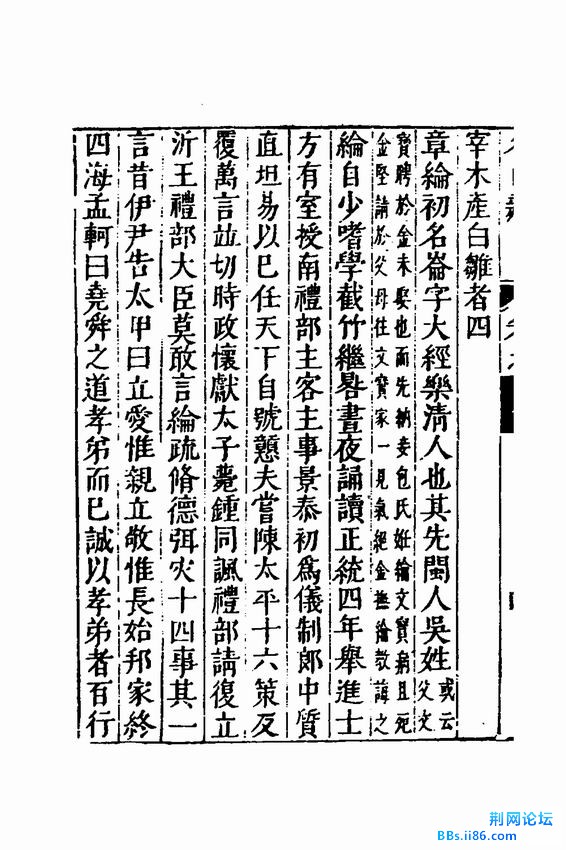 宰木產白雛者四
章綸初名崙字大經樂清人也其先閩人吳姓或云父文
寶聘於金未娶也而先納妾包氏妊綸文寶病且死
金堅請於父母往文寶家一見氣絕金撫綸教誨之
綸自少嗜學截竹繼晷晝夜誦讀正統四年舉進士
方有室授南禮部主客主事景泰初爲儀制郎中質
直坦易以巳任天下自號戇夫嘗陳太平十六策反
覆萬言竝切時政懷獻太子薨鍾同諷禮部請復立
沂王禮部大臣莫敢言綸疏脩德弭灾十四事其一
言昔伊尹告太甲曰立愛惟親立敬惟長始邦家終
四海孟軻曰堯舜之道孝弟而巳誠以孝弟者百行
荆网论坛
BBs.ii86.com